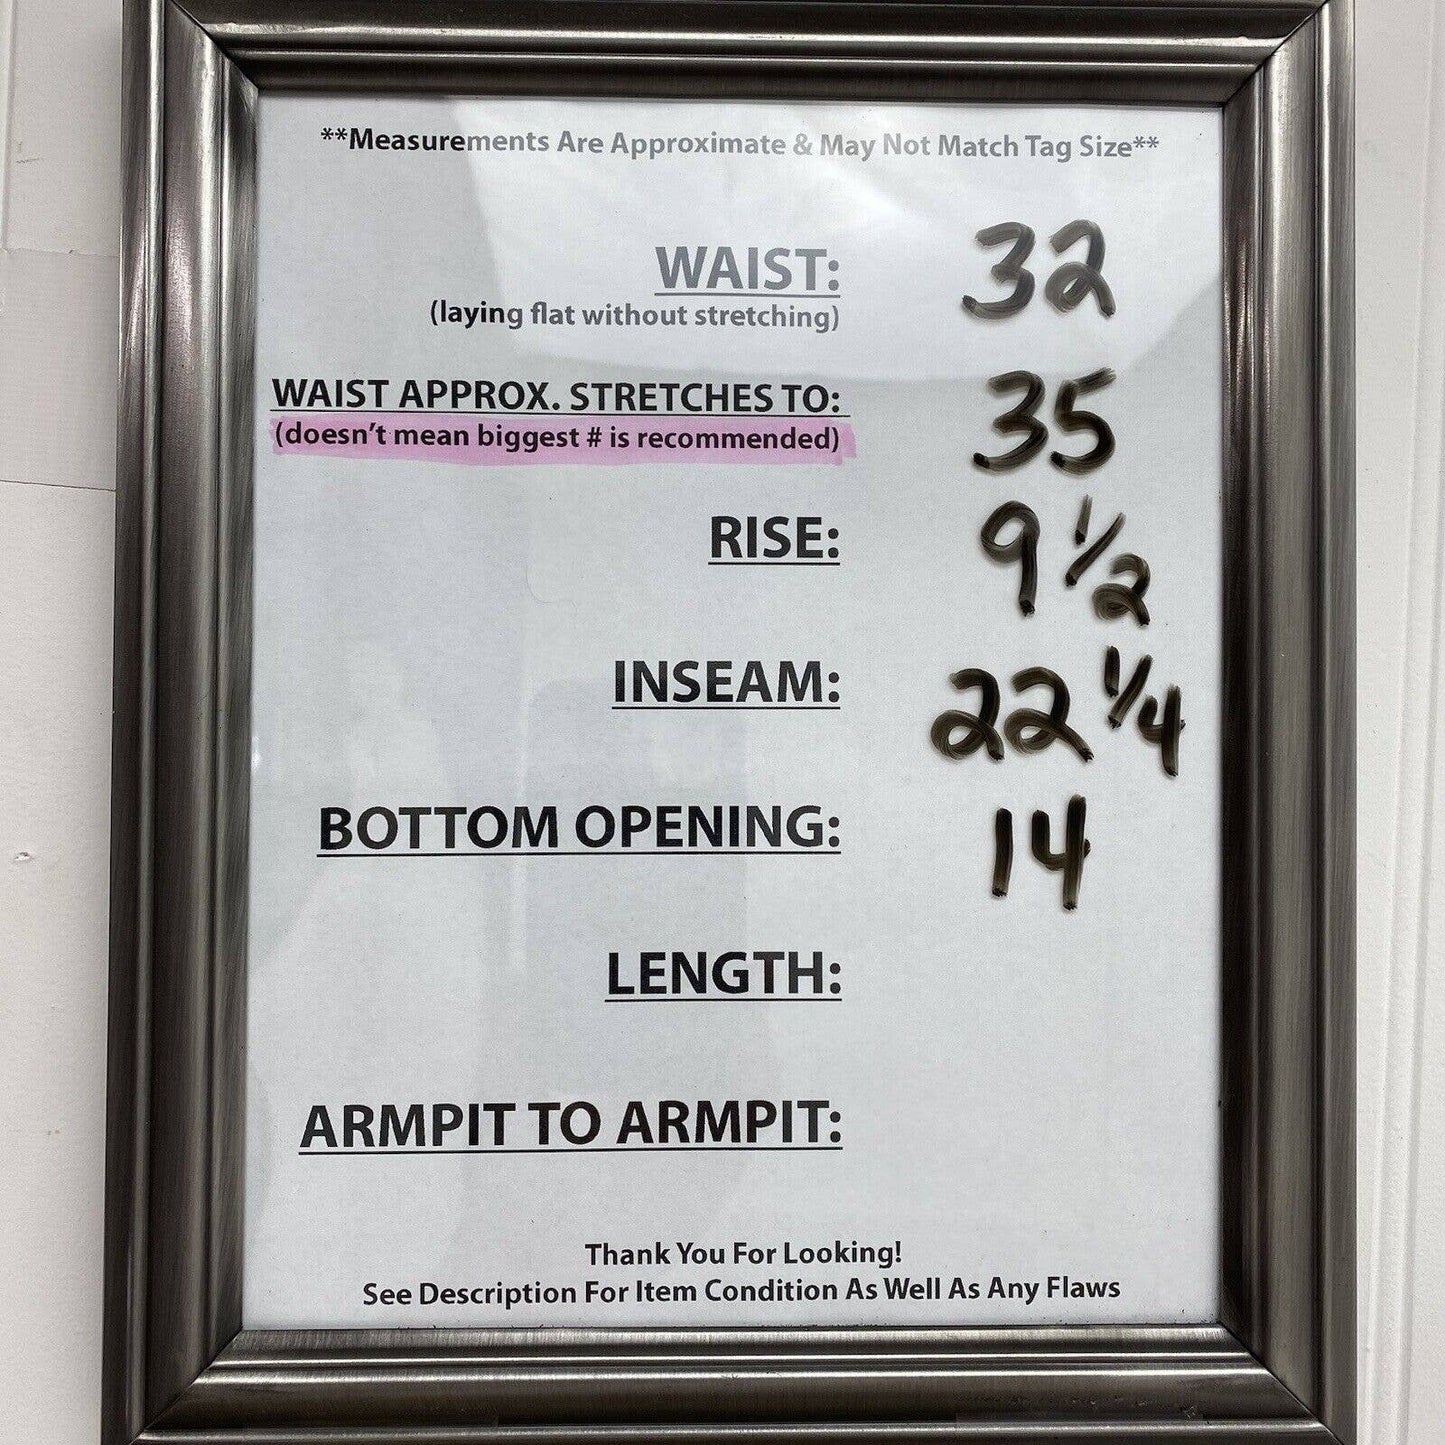 **Measurements Are Approximate & May Not Match Tag Size**
WAIST: 32
(laying flat without stretching)
WAIST APPROX. STRETCHES TO: 35
(doesn't mean biggest # is recommended)
RISE: 9 1/2
INSEAM: 22 1/4
BOTTOM OPENING: 14
LENGTH:
ARMPIT TO ARMPIT:
Thank You For Looking!
See Description For Item Condition As Well As Any Flaws